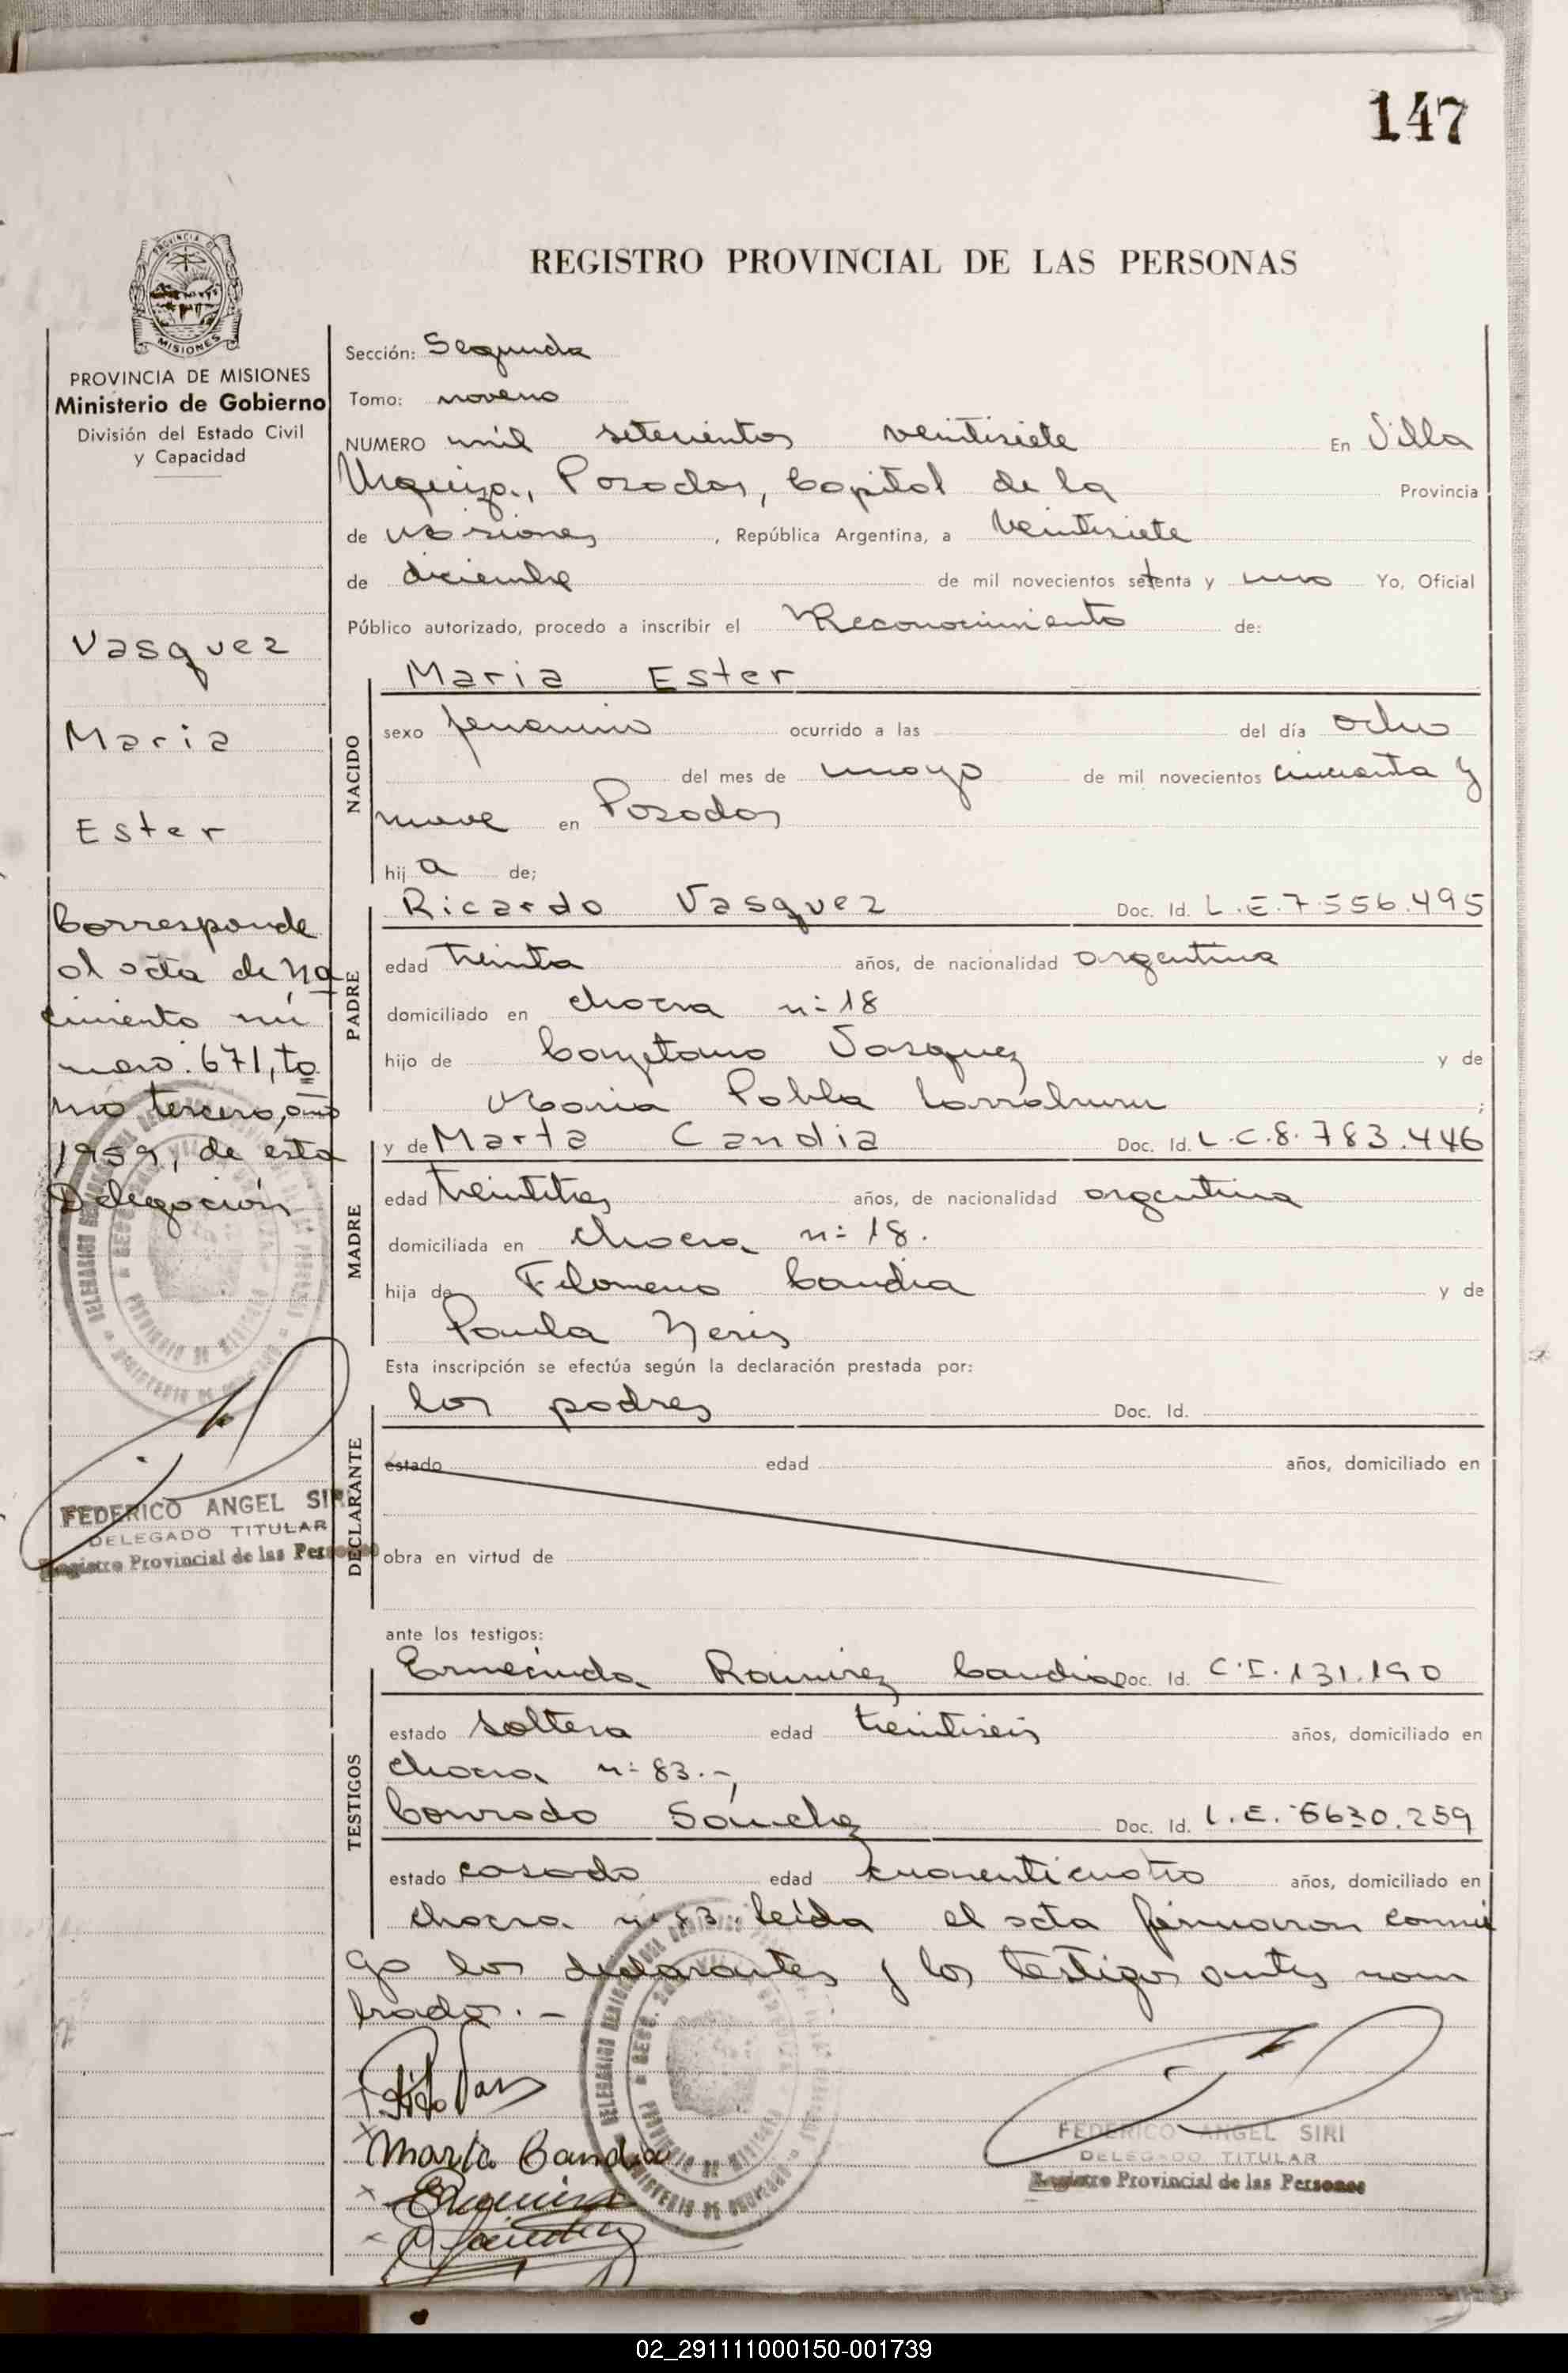 147
REGISTRO PROVINCIAL DE LAS PERSONAS
PROVINCIA DE MISIONES
Ministerio de Gobierno
División del Estado Civil
y Capacidad
Vasquez
Maria
Ester
Corresponde
al acta de na
cimiento nú
mero 671, to
mo tercero, año
1959, de esta
Delegación
FEDERICO ANGEL SIRI
DELEGADO TITULAR
Registro Provincial de las Personas
Sección: Segunda
Tomo: noveno
NUMERO mil setecientos veintisiete En Villa
Urquiza, Posadas, Capital de la Provincia
de Misiones, República Argentina, a veintisiete
de diciembre de mil novecientos setenta y uno Yo, Oficial
Público autorizado, procedo a inscribir el Reconocimiento de:
NACIDO
Maria Ester
sexo femenino ocurrido a las del día ocho
del mes de mayo de mil novecientos cincuenta y
nueve en Posadas
hij a de;
PADRE
Ricardo Vasquez Doc. Id. L.E.7.556.495
edad treinta años, de nacionalidad argentina
domiciliado en chacra n= 18
hijo de Cayetano Vasquez y de
Maria Pabla ;
MADRE
y de Marta Candia Doc. Id. L.C.8.783.446
edad treintitres años, de nacionalidad argentina
domiciliada en chacra n= 18.
hija de Filomeno Candia y de
Paula Neris
Esta inscripción se efectúa según la declaración prestada por:
DECLARANTE
los padres Doc. Id.
estado edad años, domiciliado en
obra en virtud de
ante los testigos:
TESTIGOS
Ermecinda Ramirez Candia Doc. Id. C.I.131.190
estado soltera edad treintiseis años, domiciliado en
chacra n= 83.-,
Conrado Sánchez Doc. Id. L.E. 5630.259
estado casado edad cuarenticuatro años, domiciliado en
chacra n= 83. leída el acta firmaron conmi
go los declarantes y los testigos antes nom
brados.-
Marta Candia
FEDERICO ANGEL SIRI
DELEGADO TITULAR
Registro Provincial de las Personas
02_291111000150-001739